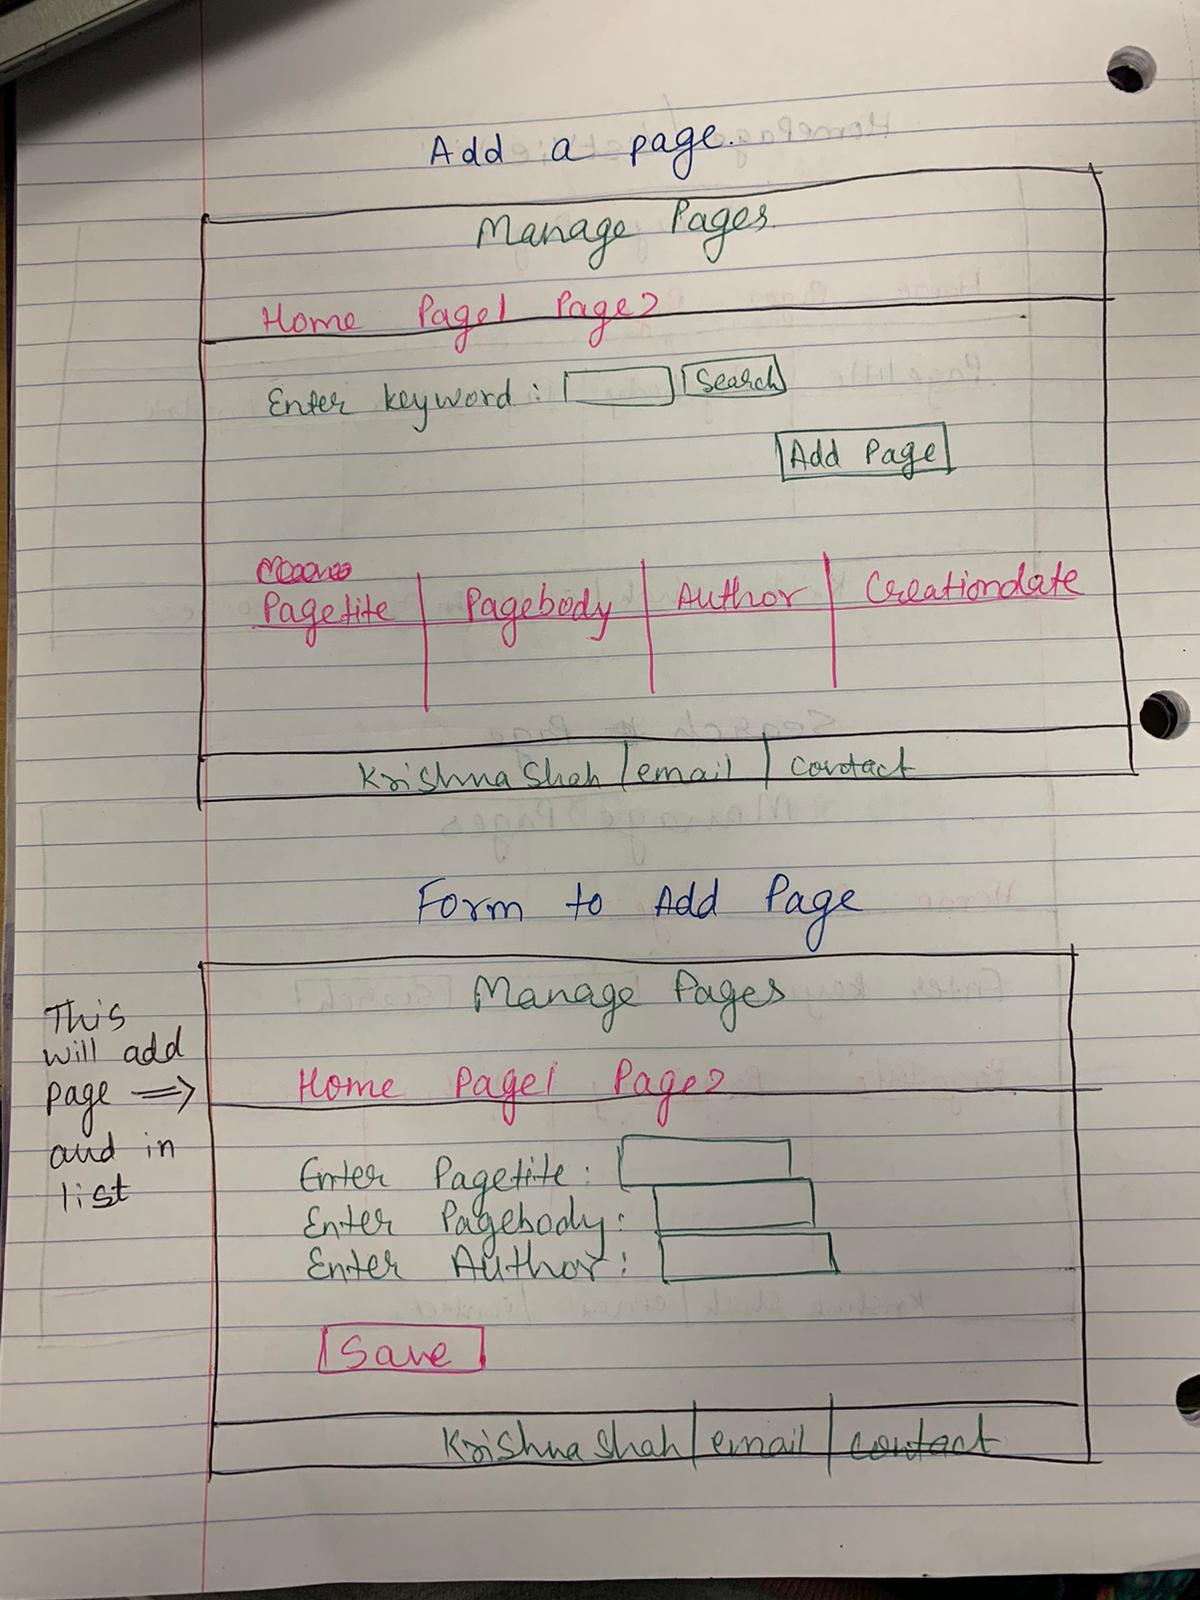 Add a page.
Manage Pages
Home Page1 Page2
Enter keyword : Search
Add Page
Pagetite Pagebody Author Creationdate
Krishna Shah email contact
Form to Add Page
Manage Pages
Home Page1 Page2
This
will add
page ⇒
and in
list
Enter Pagetite :
Enter Pagebody :
Enter Author :
Save
Krishna Shah email contact